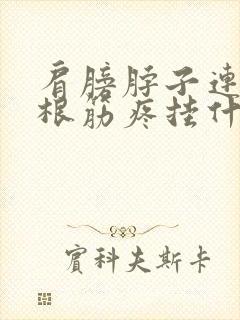 肩膀脖子連
根筋疼挂什
賓科夫斯卡